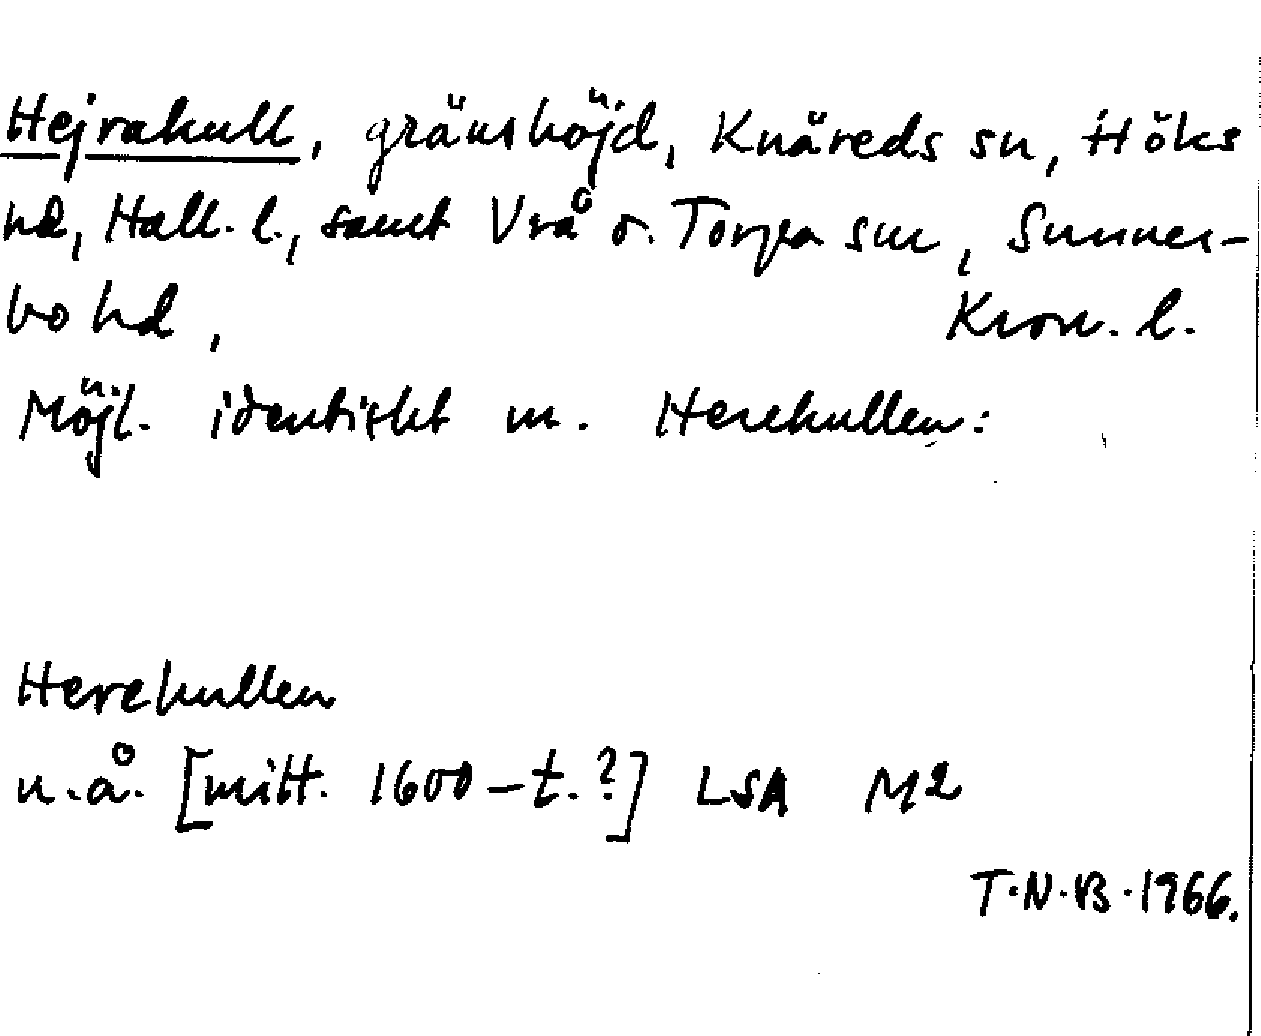 Hejrakull, gränshöjd, Knäreds sn, Höks
hd, Hall. l., samt Vrå o. Torpa snr, Sunner-
bo hd, Kron. l.
Möjl. identiskt m. Herekullen:
Herekullen
u.å. [mitt. 1600-t.?] LSA M2
T.N.B. 1966.